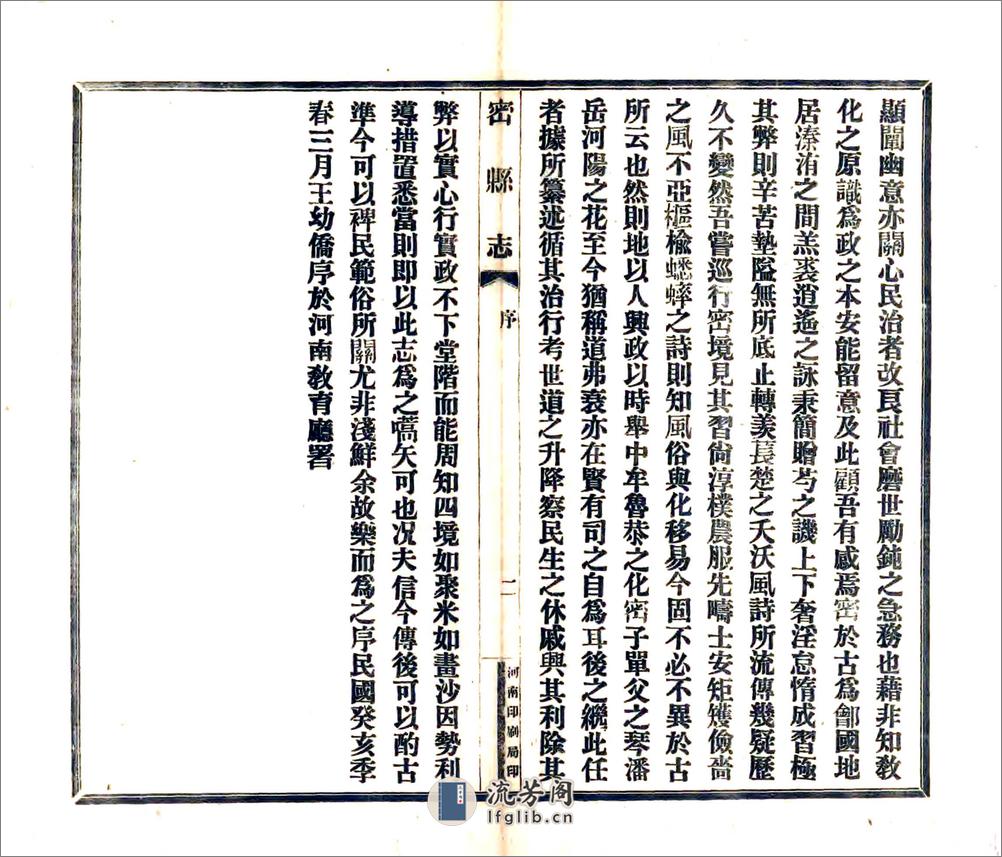 顯闡幽意亦關心民治者改良社會磨世勵鈍之急務也藉非知敎
化之原識爲政之本安能留意及此顧吾有感焉密於古爲鄶國地
居溱洧之間羔裘逍遙之詠秉簡贈芍之譏上下奢淫怠惰成習極
其弊則辛苦墊隘無所底止轉羨萇楚之夭沃風詩所流傳幾疑歷
久不變然吾嘗巡行密境見其習尙淳樸農服先疇士安矩矱儉嗇
之風不亞樞楡蟋蟀之詩則知風俗與化移易今固不必不異於古
所云也然則地以人興政以時舉中牟魯恭之化密子單父之琴潘
岳河陽之花至今猶稱道弗衰亦在賢有司之自爲耳後之纜此任
者據所纂述循其治行考世道之升降察民生之休戚興其利除其
密縣志
序
二
河南印刷局印
弊以實心行實政不下堂階而能周知四境如聚米如畫沙因勢利
導措置悉當則即以此志爲之嚆矢可也况夫信今傳後可以酌古
準今可以裨民範俗所關尤非淺鮮余故樂而爲之序民國癸亥季
春三月王幼僑序於河南敎育廳署
流芳阁
lfglib.cn